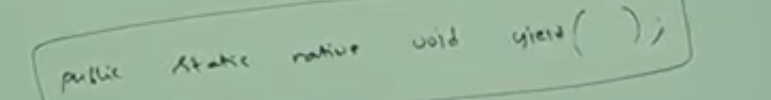 public static native void yield( );